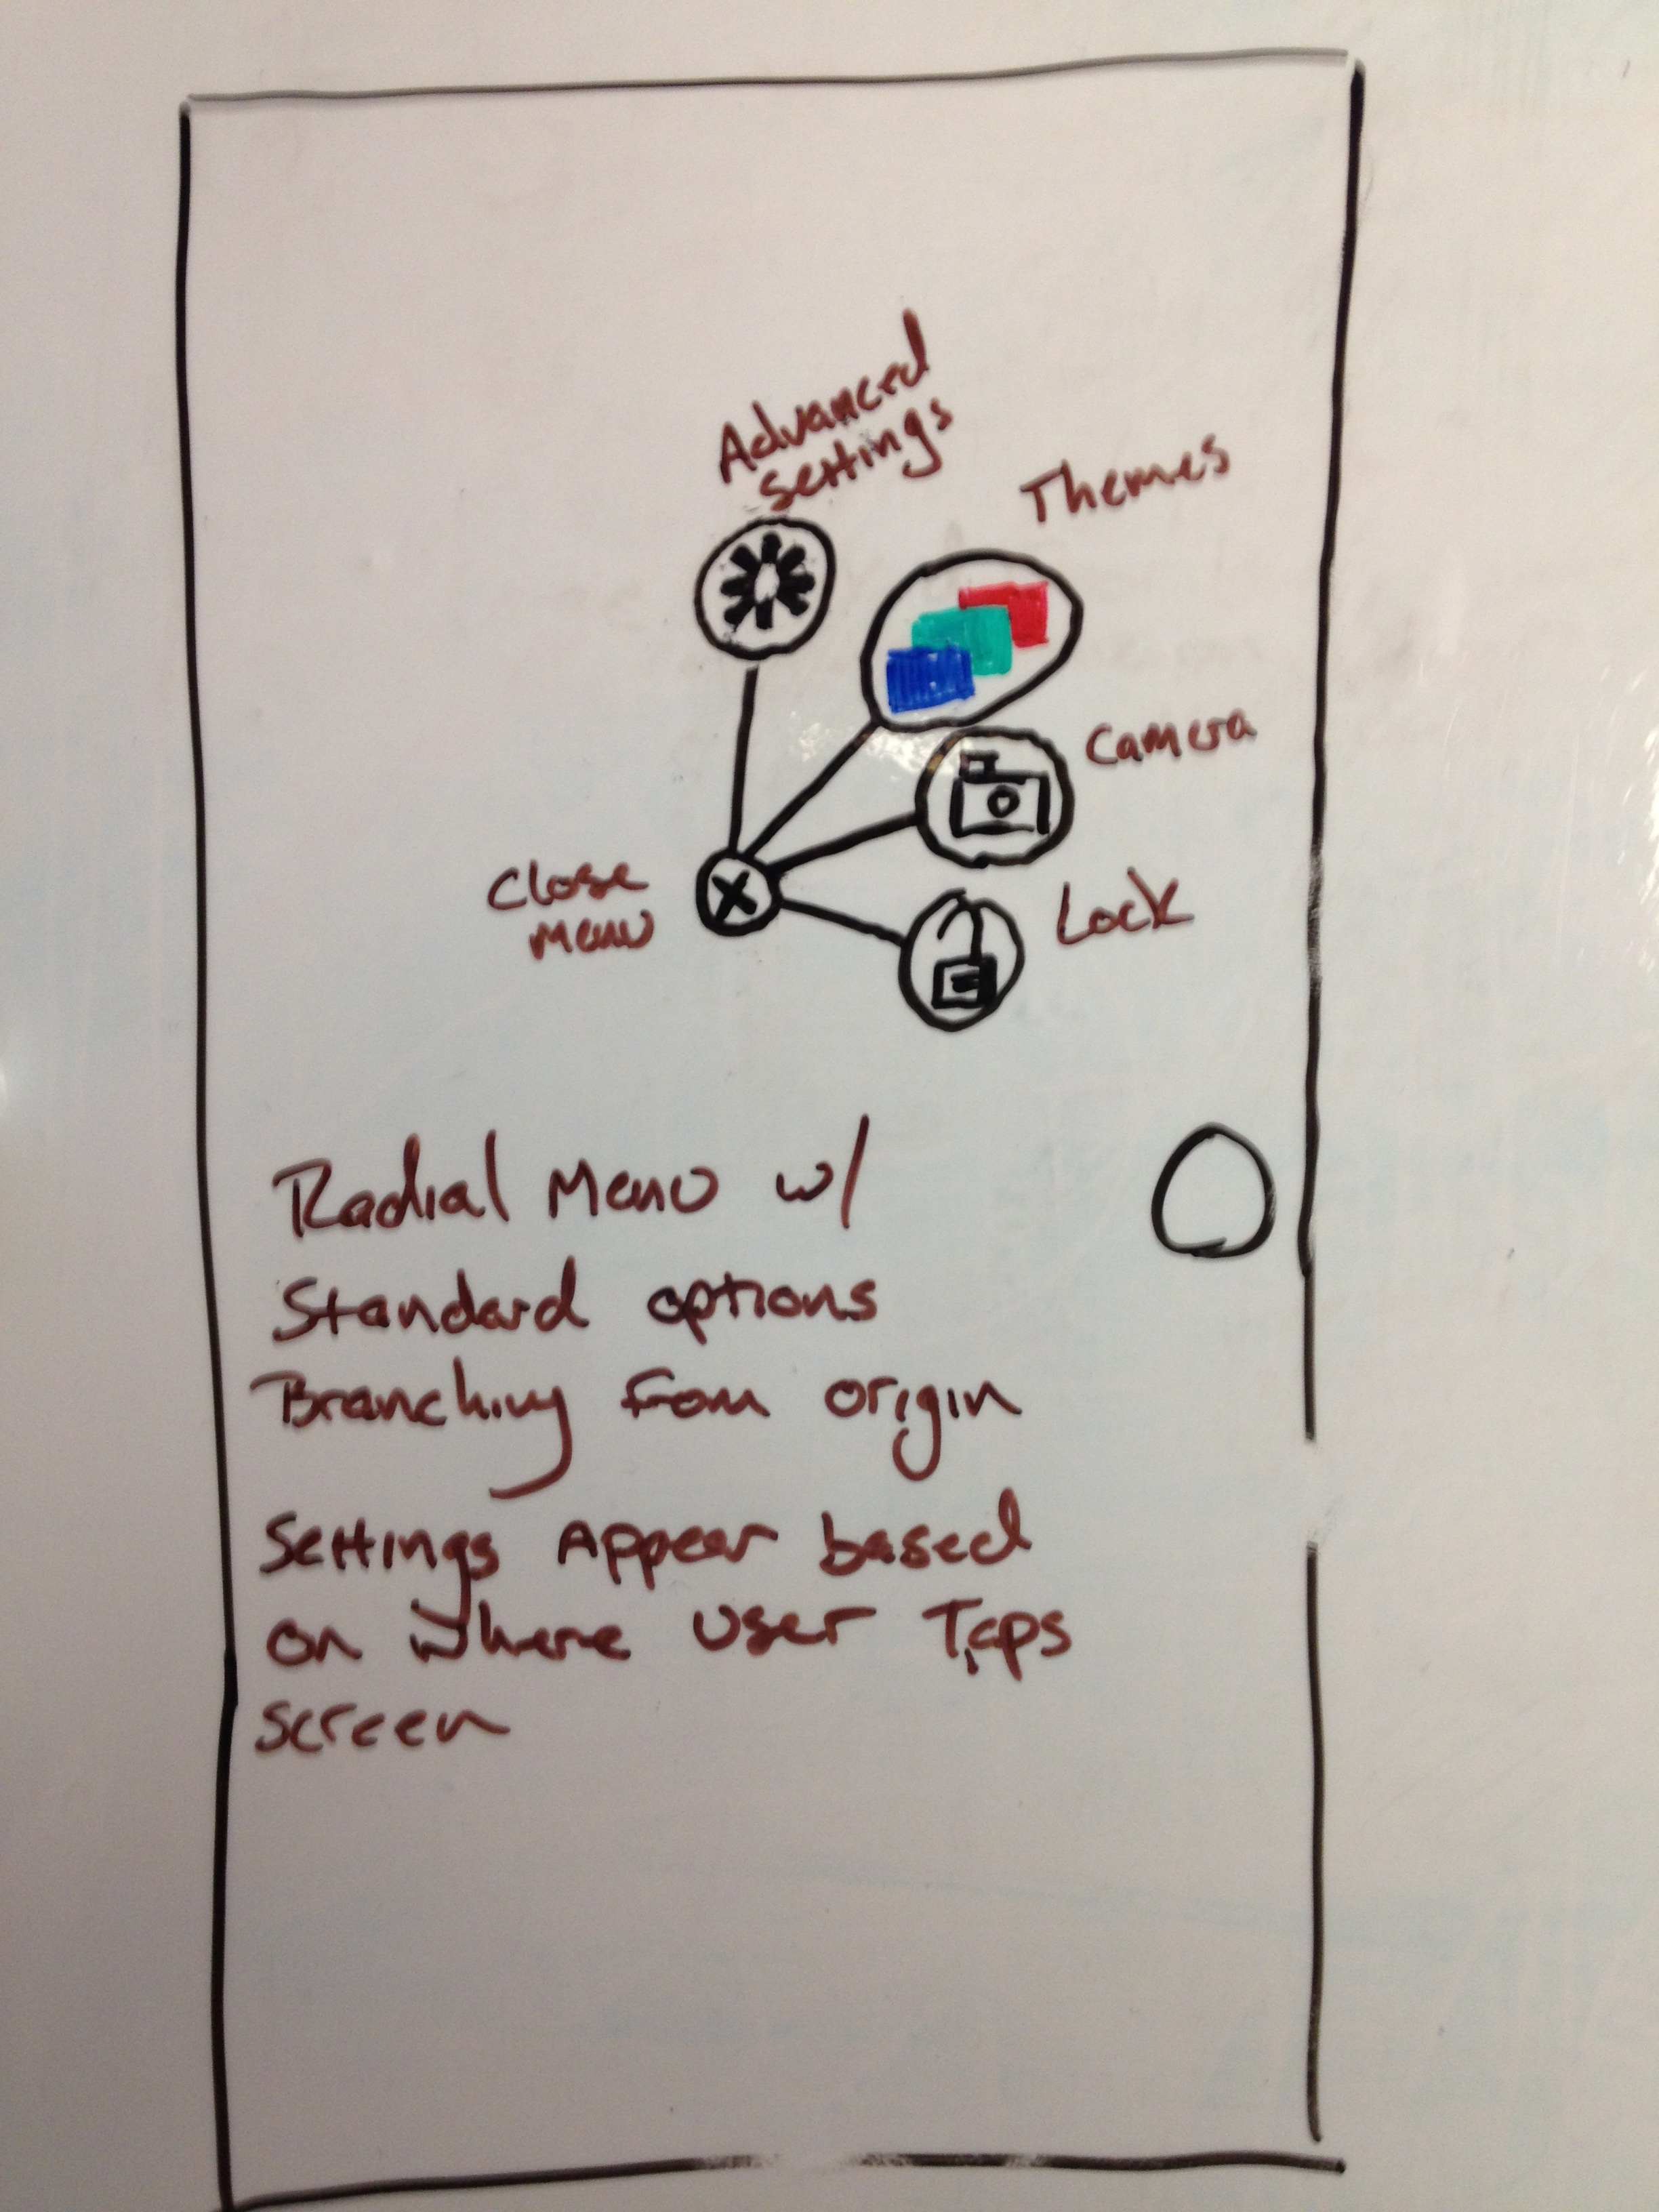 Advanced
settings
Themes
Camera
Close
Menu
Lock
Radial Menu w/
Standard options
Branching from origin
Settings Appear based
on where user Taps
screen